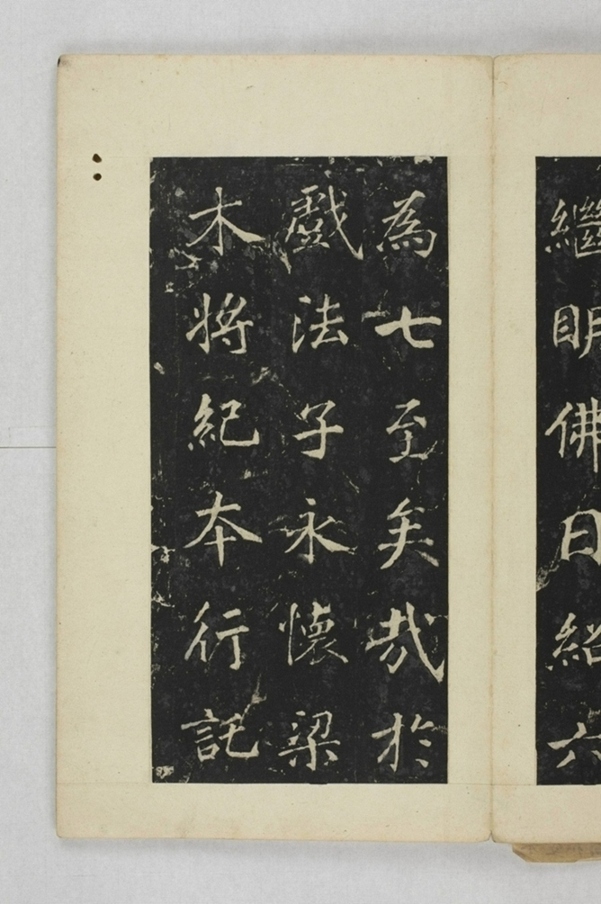 繼明佛日紹六
為七至矣哉於
戲法子永懷梁
木將紀本行託